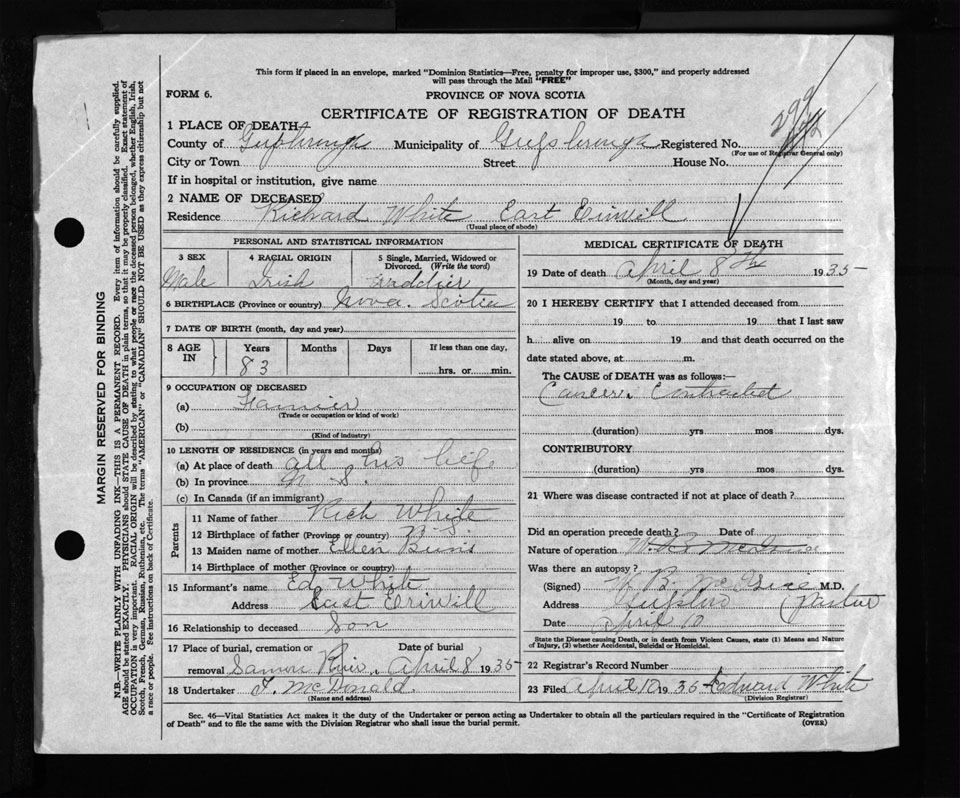 This form if placed in an envelope, marked "Dominion Statistics—Free, penalty for improper use, $300," and properly addressed
will pass through the Mail "FREE"
FORM 6.
PROVINCE OF NOVA SCOTIA
CERTIFICATE OF REGISTRATION OF DEATH
1 PLACE OF DEATH
County of Municipality of Registered No.
(For use of Registrar General only)
City or Town Street House No.
If in hospital or institution, give name
2 NAME OF DECEASED
Richard White East
Residence
(Usual place of abode)
PERSONAL AND STATISTICAL INFORMATION
3 SEX 4 RACIAL ORIGIN 5 Single, Married, Widowed or Divorced. (Write the word)
Male Irish
6 BIRTHPLACE (Province or country) Nova Scotia
7 DATE OF BIRTH (month, day and year)
8 AGE IN Years Months Days If less than one day,
83 hrs. or min.
9 OCCUPATION OF DECEASED
(a)
(Trade or occupation or kind of work)
(b)
(Kind of industry)
10 LENGTH OF RESIDENCE (in years and months)
(a) At place of death all his life
(b) In province N S.
(c) In Canada (if an immigrant)
Parents
11 Name of father Rich White
12 Birthplace of father (Province or country) N S
13 Maiden name of mother Ellen
14 Birthplace of mother (Province or country)
15 Informant's name Ed White
Address East
16 Relationship to deceased Son
17 Place of burial, cremation or removal Date of burial
April 8 1935
18 Undertaker J. McDonald
(Name and address)
MEDICAL CERTIFICATE OF DEATH
19 Date of death April 8th 1935
(Month, day and year)
20 I HEREBY CERTIFY that I attended deceased from
19 to 19 that I last saw
h alive on 19 and that death occurred on the
date stated above, at m.
The CAUSE of DEATH was as follows:—
Cancer. Contracted
(duration) yrs mos dys.
CONTRIBUTORY
(duration) yrs mos dys.
21 Where was disease contracted if not at place of death?
Did an operation precede death? Date of
Nature of operation
Was there an autopsy?
(Signed) M.D.
Address
Date April 10
State the Disease causing Death, or in death from Violent Causes, state (1) Means and Nature
of Injury, (2) whether Accidental, Suicidal or Homicidal.
22 Registrar's Record Number
23 Filed April 10 1935 Edward White
(Division Registrar)
Sec. 46—Vital Statistics Act makes it the duty of the Undertaker or person acting as Undertaker to obtain all the particulars required in the "Certificate of Registration
of Death" and to file the same with the Division Registrar who shall issue the burial permit.
(OVER)
MARGIN RESERVED FOR BINDING
N.B.—WRITE PLAINLY WITH UNFADING INK—THIS IS A PERMANENT RECORD. Every item of information should be carefully supplied.
AGE should be stated EXACTLY. PHYSICIANS should STATE CAUSE OF DEATH in plain terms, so that it may be properly classified. Exact statement of
OCCUPATION is very important. RACIAL ORIGIN will be described by stating to what people or race the deceased person belonged, whether English, Irish,
Scotch, French, German, Russian, Ruthenian, etc. The terms "AMERICAN" or "CANADIAN" SHOULD NOT BE USED as they express citizenship but not
a race or people. See instructions on back of Certificate.